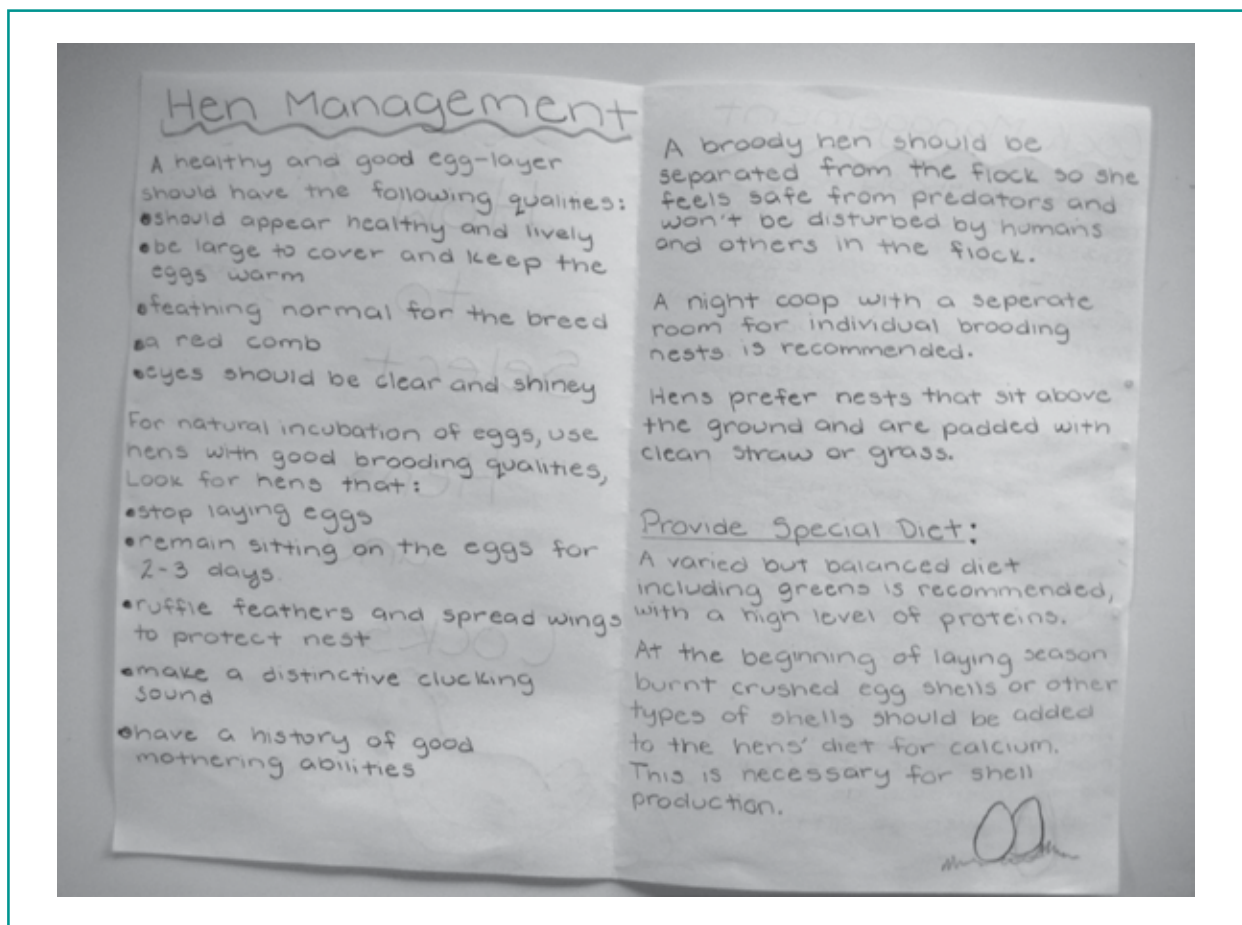 Hen Management
A healthy and good egg-layer
should have the following qualities:
•should appear healthy and lively
•be large to cover and keep the
eggs warm
•feathing normal for the breed
•a red comb
•eyes should be clear and shiney
For natural incubation of eggs, use
hens with good brooding qualities,
Look for hens that:
•stop laying eggs
•remain sitting on the eggs for
2-3 days.
•ruffle feathers and spread wings
to protect nest
•make a distinctive clucking
sound
•have a history of good
mothering abilities
A broody hen should be
separated from the flock so she
feels safe from predators and
won't be disturbed by humans
and others in the flock.
A night coop with a seperate
room for individual brooding
nests is recommended.
Hens prefer nests that sit above
the ground and are padded with
clean straw or grass.
Provide Special Diet:
A varied but balanced diet
including greens is recommended,
with a high level of proteins.
At the beginning of laying season
burnt crushed egg shells or other
types of shells should be added
to the hens' diet for calcium.
This is necessary for shell
production.